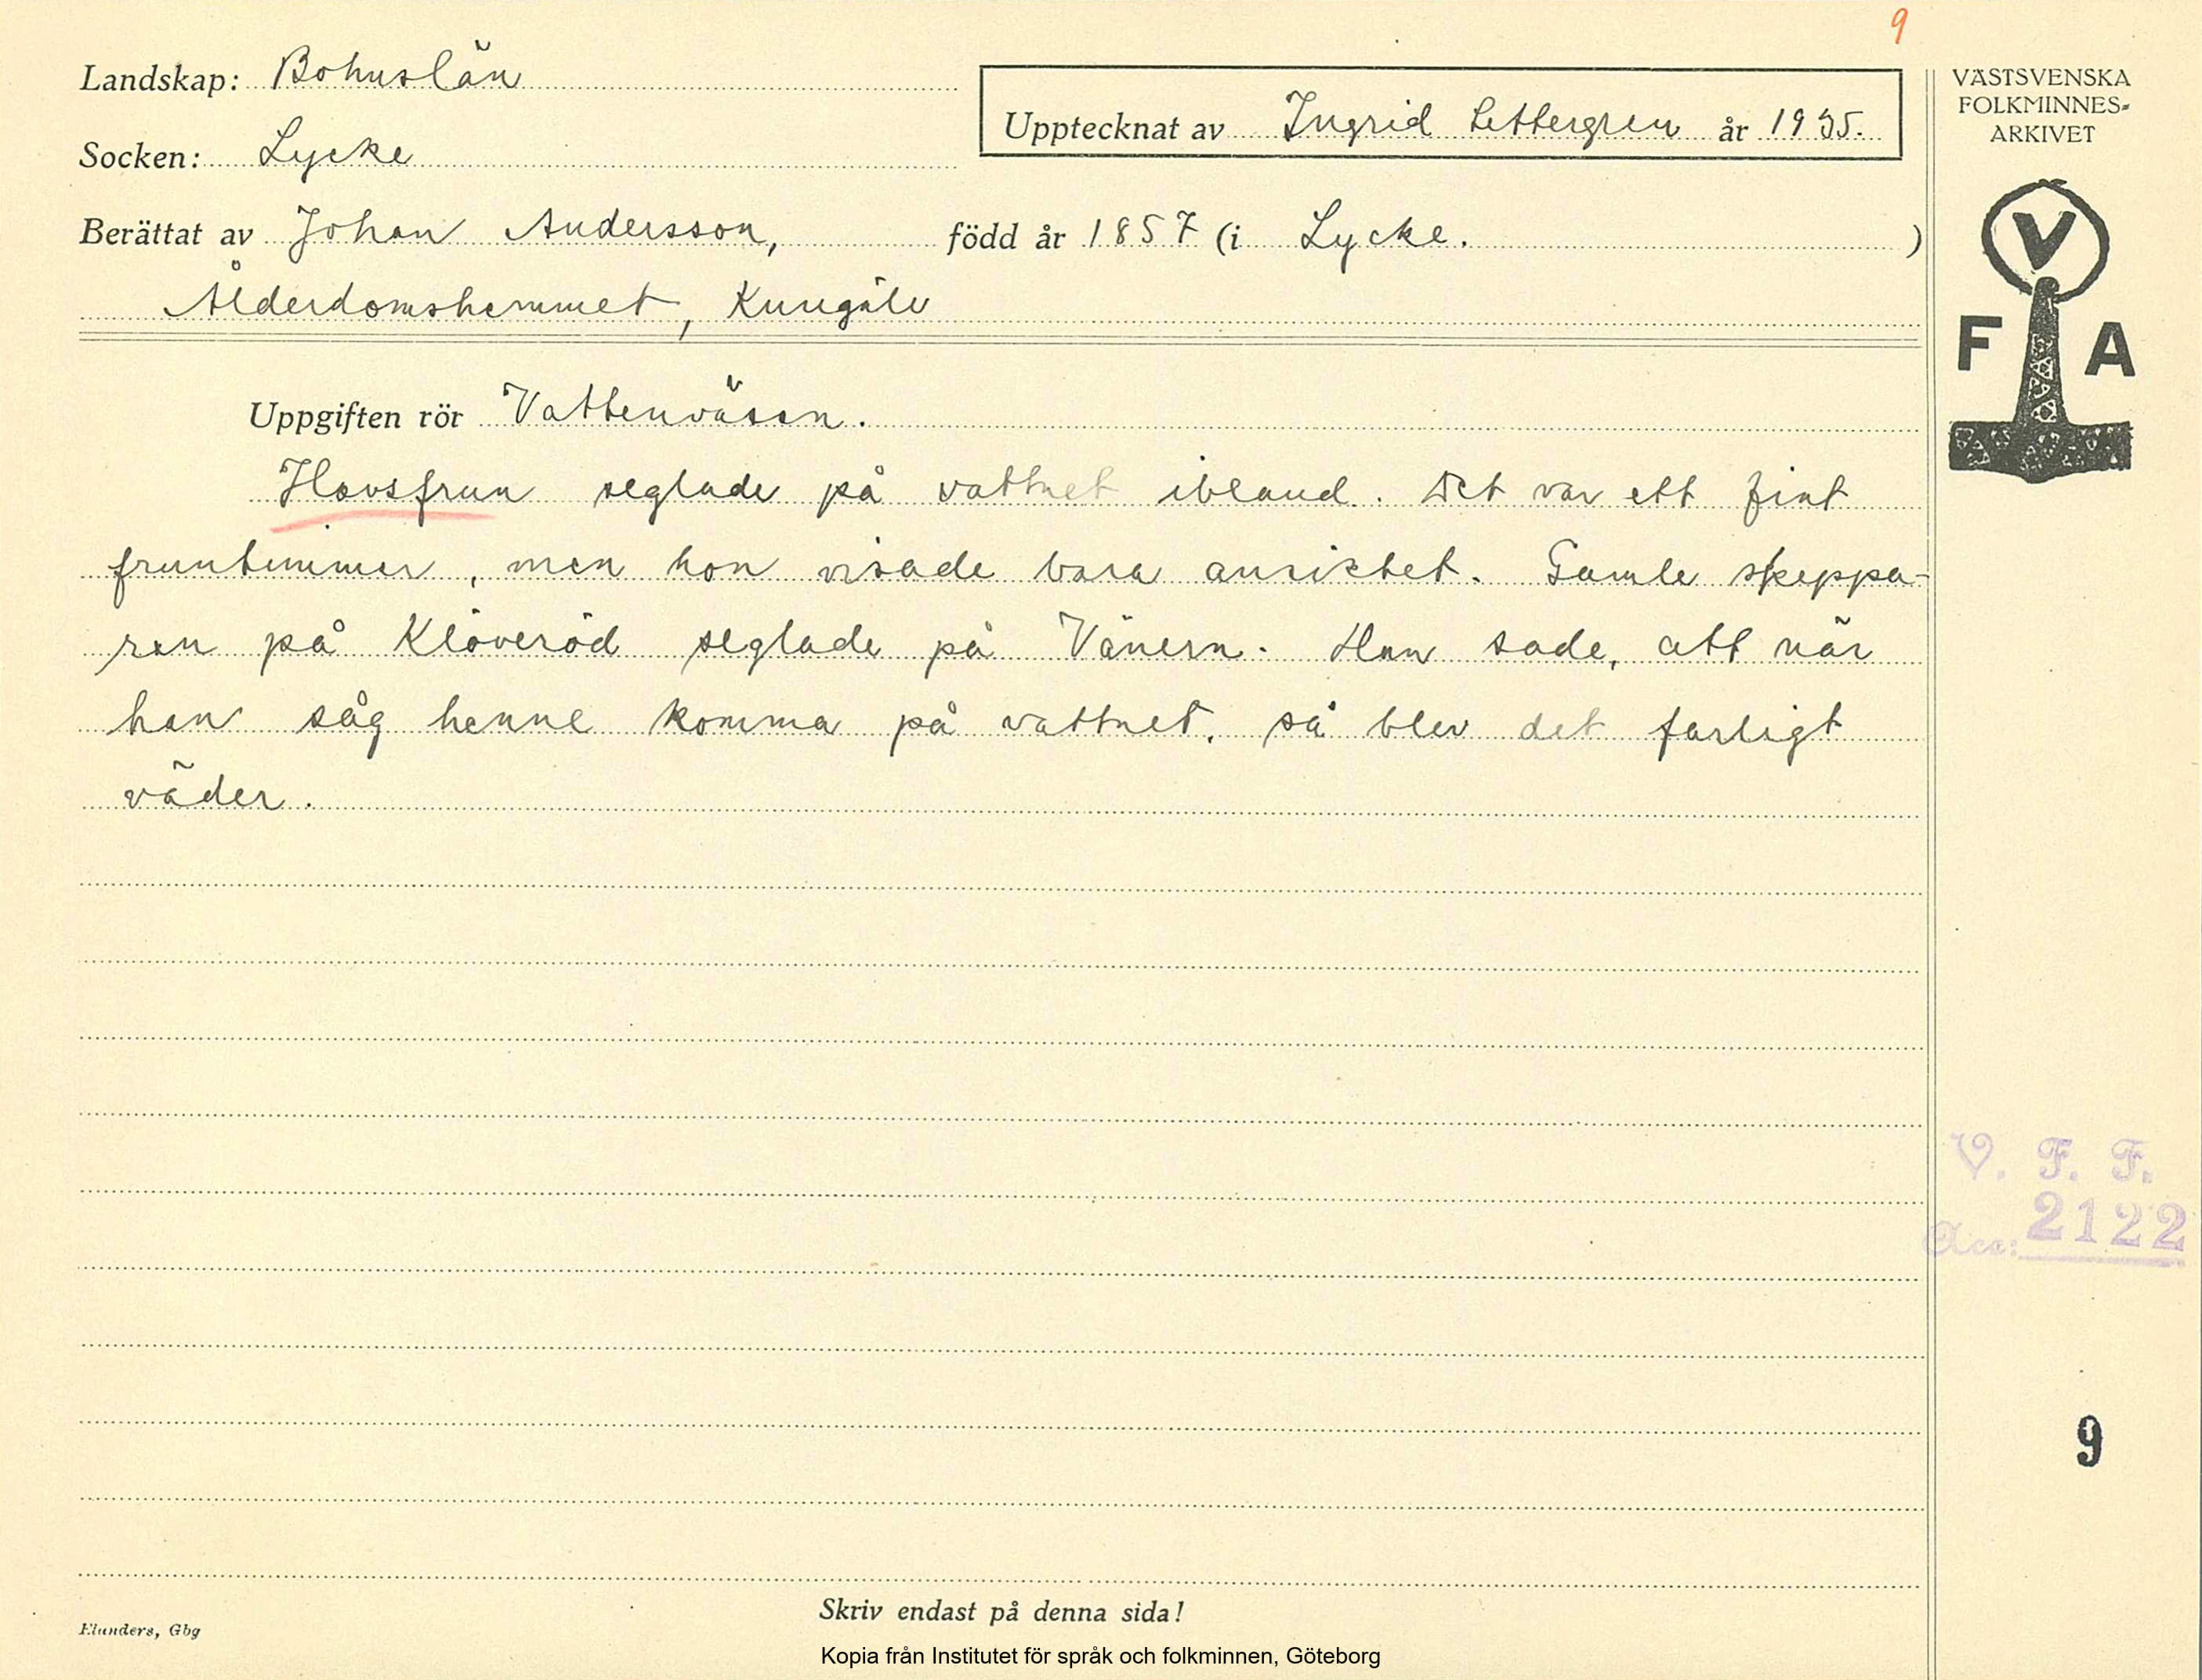 9
Landskap: Bohuslän
Socken: Lycke
Upptecknat av Ingrid Settergren år 1935.
Berättat av Johan Andersson, född år 1857 (i Lycke. )
Ålderdomshemmet, Kungälv
VÄSTSVENSKA
FOLKMINNES-
ARKIVET
V
F A
Uppgiften rör Vattenväsen.
Havsfrun seglade på vattnet ibland. Det var ett fint
fruntimmer, men hon visade bara ansiktet. Gamle skeppa-
ren på Klöveröd seglade på Vänern. Han sade, att när
han såg henne komma på vattnet, så blev det farligt
väder.
V. F. F.
Acc: 2122
9
Skriv endast på denna sida!
Elanders, Gbg
Kopia från Institutet för språk och folkminnen, Göteborg